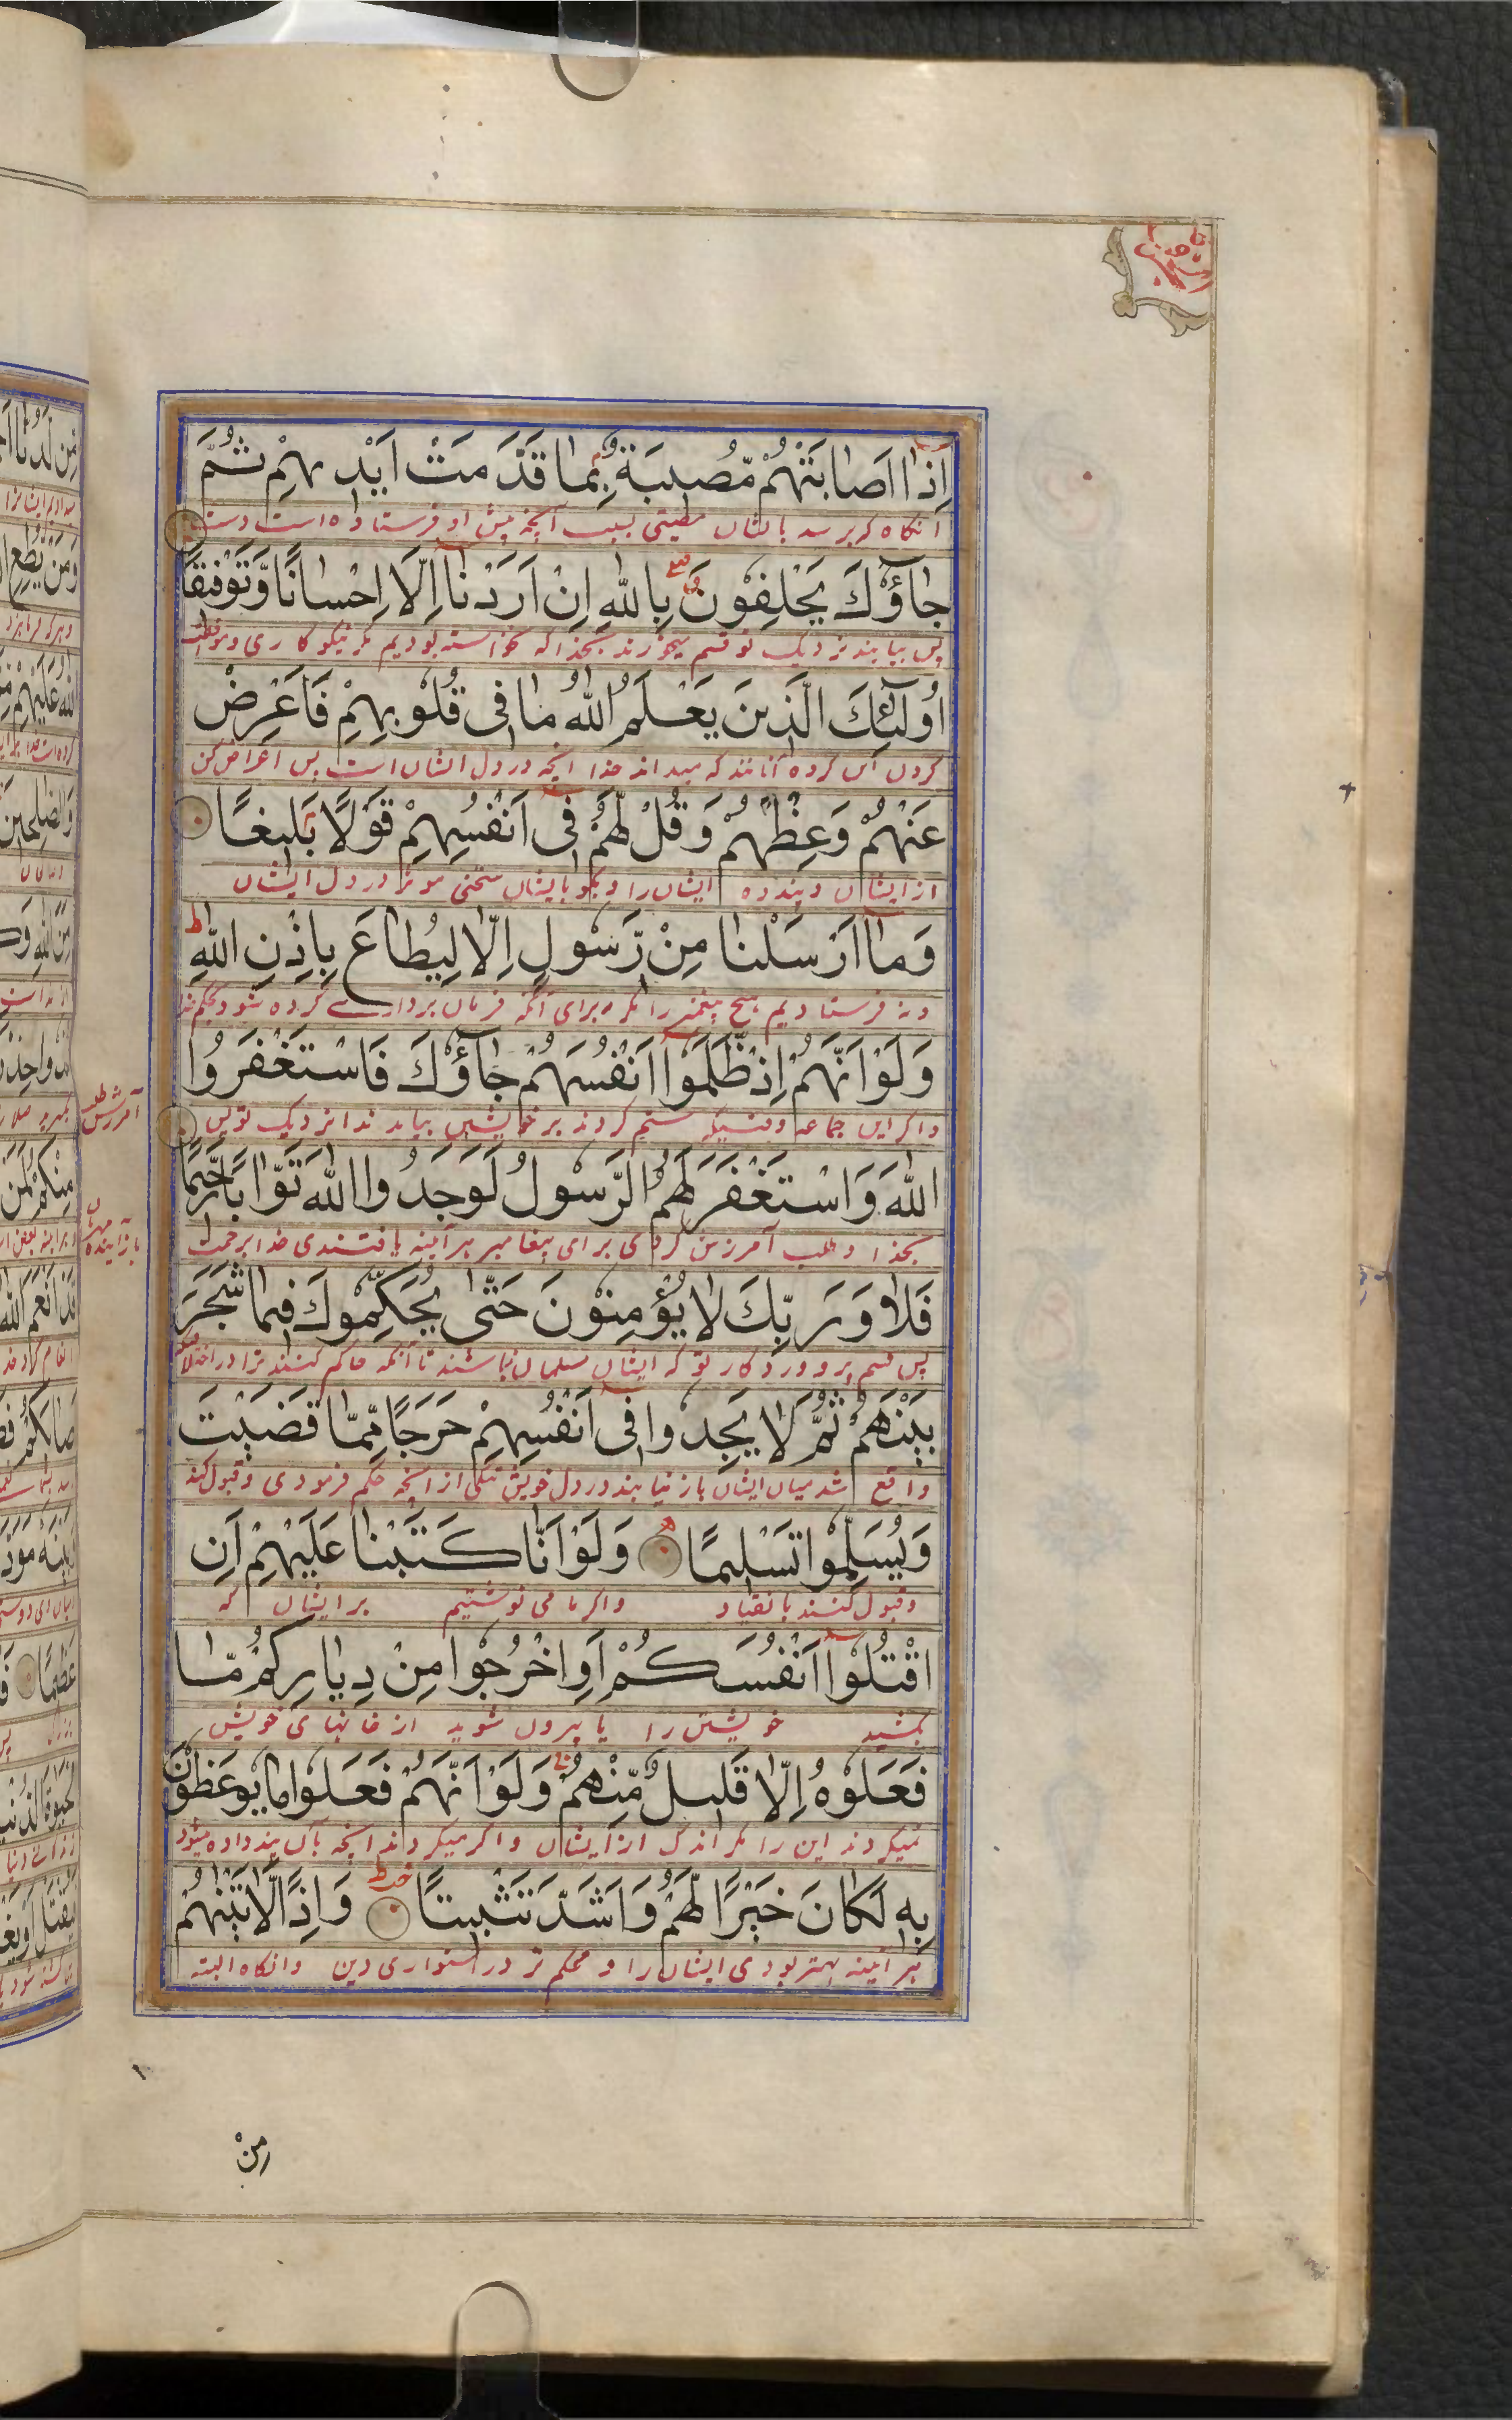 اِذٰا اَصٰابَتْهُمْ مّصُيبَةٌ بِمٰا قَدَّمَتْ اَيْدِيهِمْ ثُمَّ
آنکاه که برسد بایشان مصیبتی بسبب آنچه پیش او فرستاده است دست
جٰاؤُكَ يَحْلِفُونَ بِاللّٰهِ اِنْ اَرَدْنٰا اِلّٰا اِحْسٰانًا وَّتَوْفيقًا
پس بیایند نزدیک تو قسم میخورند بخدا که نخواسته بودیم مگر نیکو کاری و موافقت
اُولٰئِكَ الَّذينَ يَعْلَمُ اللّٰهُ مٰا فى قُلُوبِهِمْ فَاَعْرِضْ
کردن این کرده آنانند که میداند خدا آنچه در دل ایشان است پس اعراض کن
عَنْهُمْ وَعِظْهُمْ وَقُلْ لَّهُمْ فى اَنْفُسِهِمْ قَوْلًا بَليغًا
از ایشان و پند ده ایشان را و بگو بایشان سخنی موثر در دل ایشان
وَمٰا اَرْسَلْنٰا مِنْ رَّسُولٍ اِلّٰا لِيُطٰاعَ بِاِذْنِ اللّٰهِ ط
و نه فرستادیم هیچ پیغمبر را مگر برای آنکه فرمان برداری کرده شود بحکم خدا
وَلَوْ اَنَّهُمْ اِذْ ظَّلَمُوا اَنْفُسَهُمْ جٰاؤُكَ فَاسْتَغْفَرُوا
و اگر این جماعه وقتیکه ستم کردند بر خویشتن بیامدندا نزدیک تو پس
آمرزش طلب
اللّٰهَ وَاسْتَغْفَرَ لَهُمُ الرَّسُولُ لَوَجَدُوا اللّٰهَ تَوَّابًا رَّحيمًا
بخدا و طلب آمرزش کردی برای پیغامبر هر آینه یافتندی خدا برحمت
باز آینده مهربان
فَلٰا وَرَبِّكَ لٰا يُؤْمِنُونَ حَتّٰى يُحَكِّمُوكَ فيمٰا شَجَرَ
پس قسم پروردکار تو که ایشان مسلمان نباشند تا آنکه حاکم کنند ترا در اختلافی
بَيْنَهُمْ ثُمَّ لٰا يَجِدُوا فى اَنْفُسِهِمْ حَرَجًا مِّمّٰا قَضَيْتَ
واقع شد میان ایشان باز نیابند در دل خویش تنگی از آنچه حکم فرمودی و قبول کند
وَيُسَلِّمُوا تَسْليمًا وَلَوْ اَنّٰا كَتَبْنٰا عَلَيْهِمْ اَنِ
و قبول کنند بانقیاد و اگر ما می نوشتیم بر ایشان که
اقْتُلُوا اَنْفُسَكُمْ اَوِ اخْرُجُوا مِنْ دِيٰارِكُمْ مّٰا
بکشید خویشتن را یا بیرون شوید از خانهای خویش
فَعَلُوهُ اِلّٰا قَليلٌ مِّنْهُمْ وَلَوْ اَنَّهُمْ فَعَلُوا مٰا يُوعَظُونَ
نمیکردند این را مگر اندک از ایشان و اگر میکردند آنچه بآن پند داده میشود
بِهٖ لَكٰانَ خَيْرًا لَّهُمْ وَاَشَدَّ تَثْبيتًا وَاِذًا لَّاٰتَيْنٰهُمْ
هر آینه بهتر بودی ایشان را و محکم تر در استواری دین و آنکاه البته
مِنْ